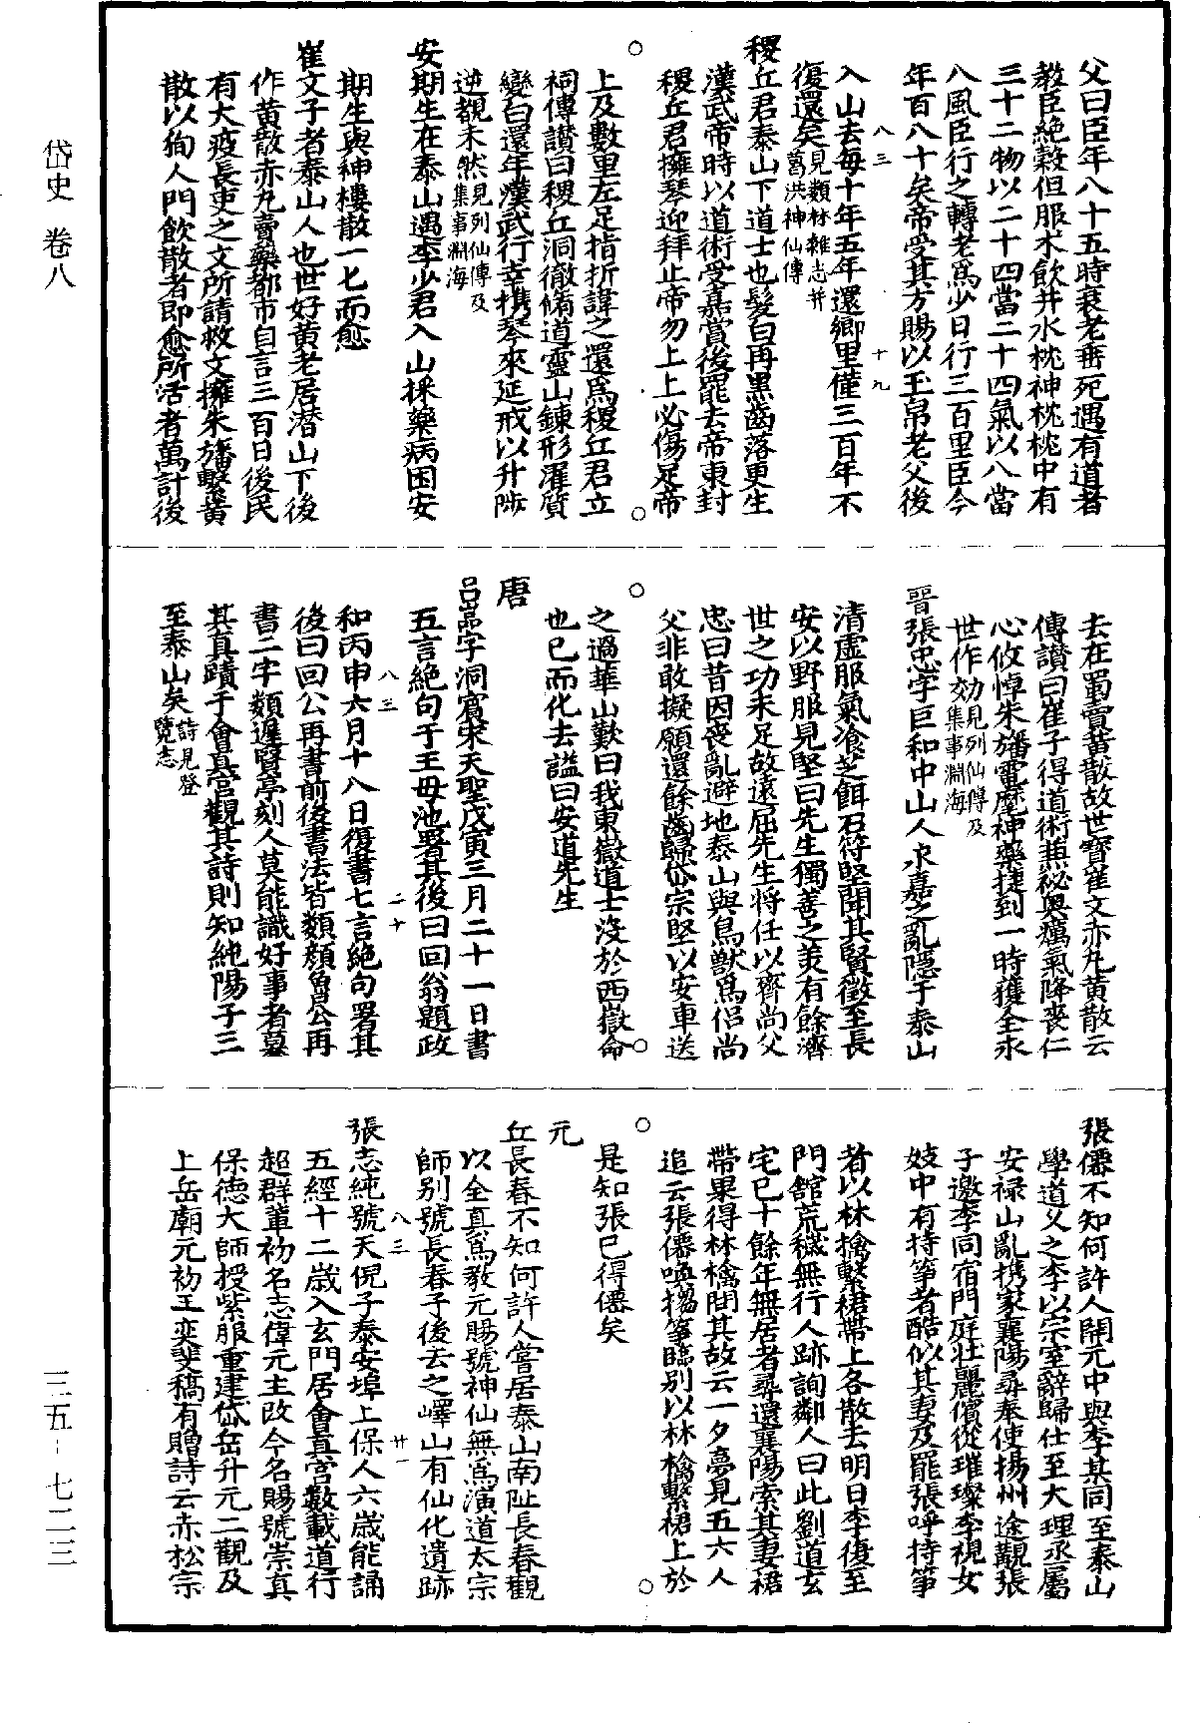 岱史 卷八
父曰臣年八十五時衰老垂死遇有道者
教臣絕穀但服朮飲井水枕神枕枕中有
三十二物以二十四當二十四氣以八當
八風臣行之轉老為少日行三百里臣今
年百八十矣帝受其方賜以玉帛老父後
八三 十九
入山去每十年五年還鄉里僅三百年不
復還矣見類林雜志并葛洪神仙傳
稷丘君泰山下道士也髮白再黑齒落更生
漢武帝時以道術受嘉賞後罷去帝東封
稷丘君擁琴迎拜止帝勿上上必傷足帝
上及數里左足指折諱之還為稷丘君立
祠傳讚曰稷丘洞徹脩道靈山鍊形濯質
變白還年漢武行幸携琴來延戒以升陟
逆覩未然見列仙傳及集事淵海
安期生在泰山遇李少君入山採藥病困安
期生與神樓散一匕而愈
崔文子者泰山人也世好黃老居潛山下後
作黃散赤丸賣藥都市自言三百日後民
有大疫長吏之文所請救文擁朱旛繫黃
散以徇人門飲散者即愈所活者萬計後
去在蜀賣黃散故世寶崔文赤丸黃散云
傳讚曰崔子得道術兼祕奧癘氣降喪仁
心攸悼朱旛電麾神藥捷到一時獲全永
世作効見列仙傳及集事淵海
晉張忠字巨和中山人永嘉之亂隱于泰山
清虛服氣飡芝餌石符堅聞其賢徵至長
安以野服見堅曰先生獨善之美有餘濟
世之功未足故遠屈先生將任以齊尚父
忠曰昔因喪亂避地泰山與鳥獸為侶尚
父非敢擬願還餘齒歸岱宗堅以安車送
之過華山歎曰我東嶽道士沒於西嶽命
也已而化去謚曰安道先生
唐
呂嵒字洞賓宋天聖戊寅三月二十一日書
五言絕句于王母池署其後曰回翁題政
八三 二十
和丙申六月十八日復書七言絕句署其
後曰回公再書前後書法皆類顏魯公再
書二字類遲賢亭刻人莫能識好事者墓
其真蹟于會真宮觀其詩則知純陽子三
至泰山矣詩見登覽志
張僊不知何許人開元中與李某同至泰山
學道乂之李以宗室辭歸仕至大理丞屬
安祿山亂携家襄陽尋奉使揚州途覯張
子邀李同宿門庭壯麗儐從璀璨李視女
妓中有持箏者酷似其妻及罷張呼持箏
者以林擒繫裙帶上各散去明日李復至
門舘荒穢無行人跡詢鄰人曰此劉道玄
宅已十餘年無居者尋還襄陽索其妻裙
帶果得林檎問其故云一夕夢見五六人
追云張僊喚搊箏臨別以林檎繫裙上於
是知張已得僊矣
元
丘長春不知何許人嘗居泰山南阯長春觀
以全真為教元賜號神仙無為演道太宗
師別號長春子後去之嶧山有仙化遺跡
八三 廿一
張志純號天倪子泰安埠上保人六歲能誦
五經十二歲入玄門居會真宮數載道行
超群輩初名志偉元主改今名賜號崇真
保德大師授紫服重建岱岳升元二觀及
上岳廟元初王奕斐稿有贈詩云赤松宗
三五－七二三